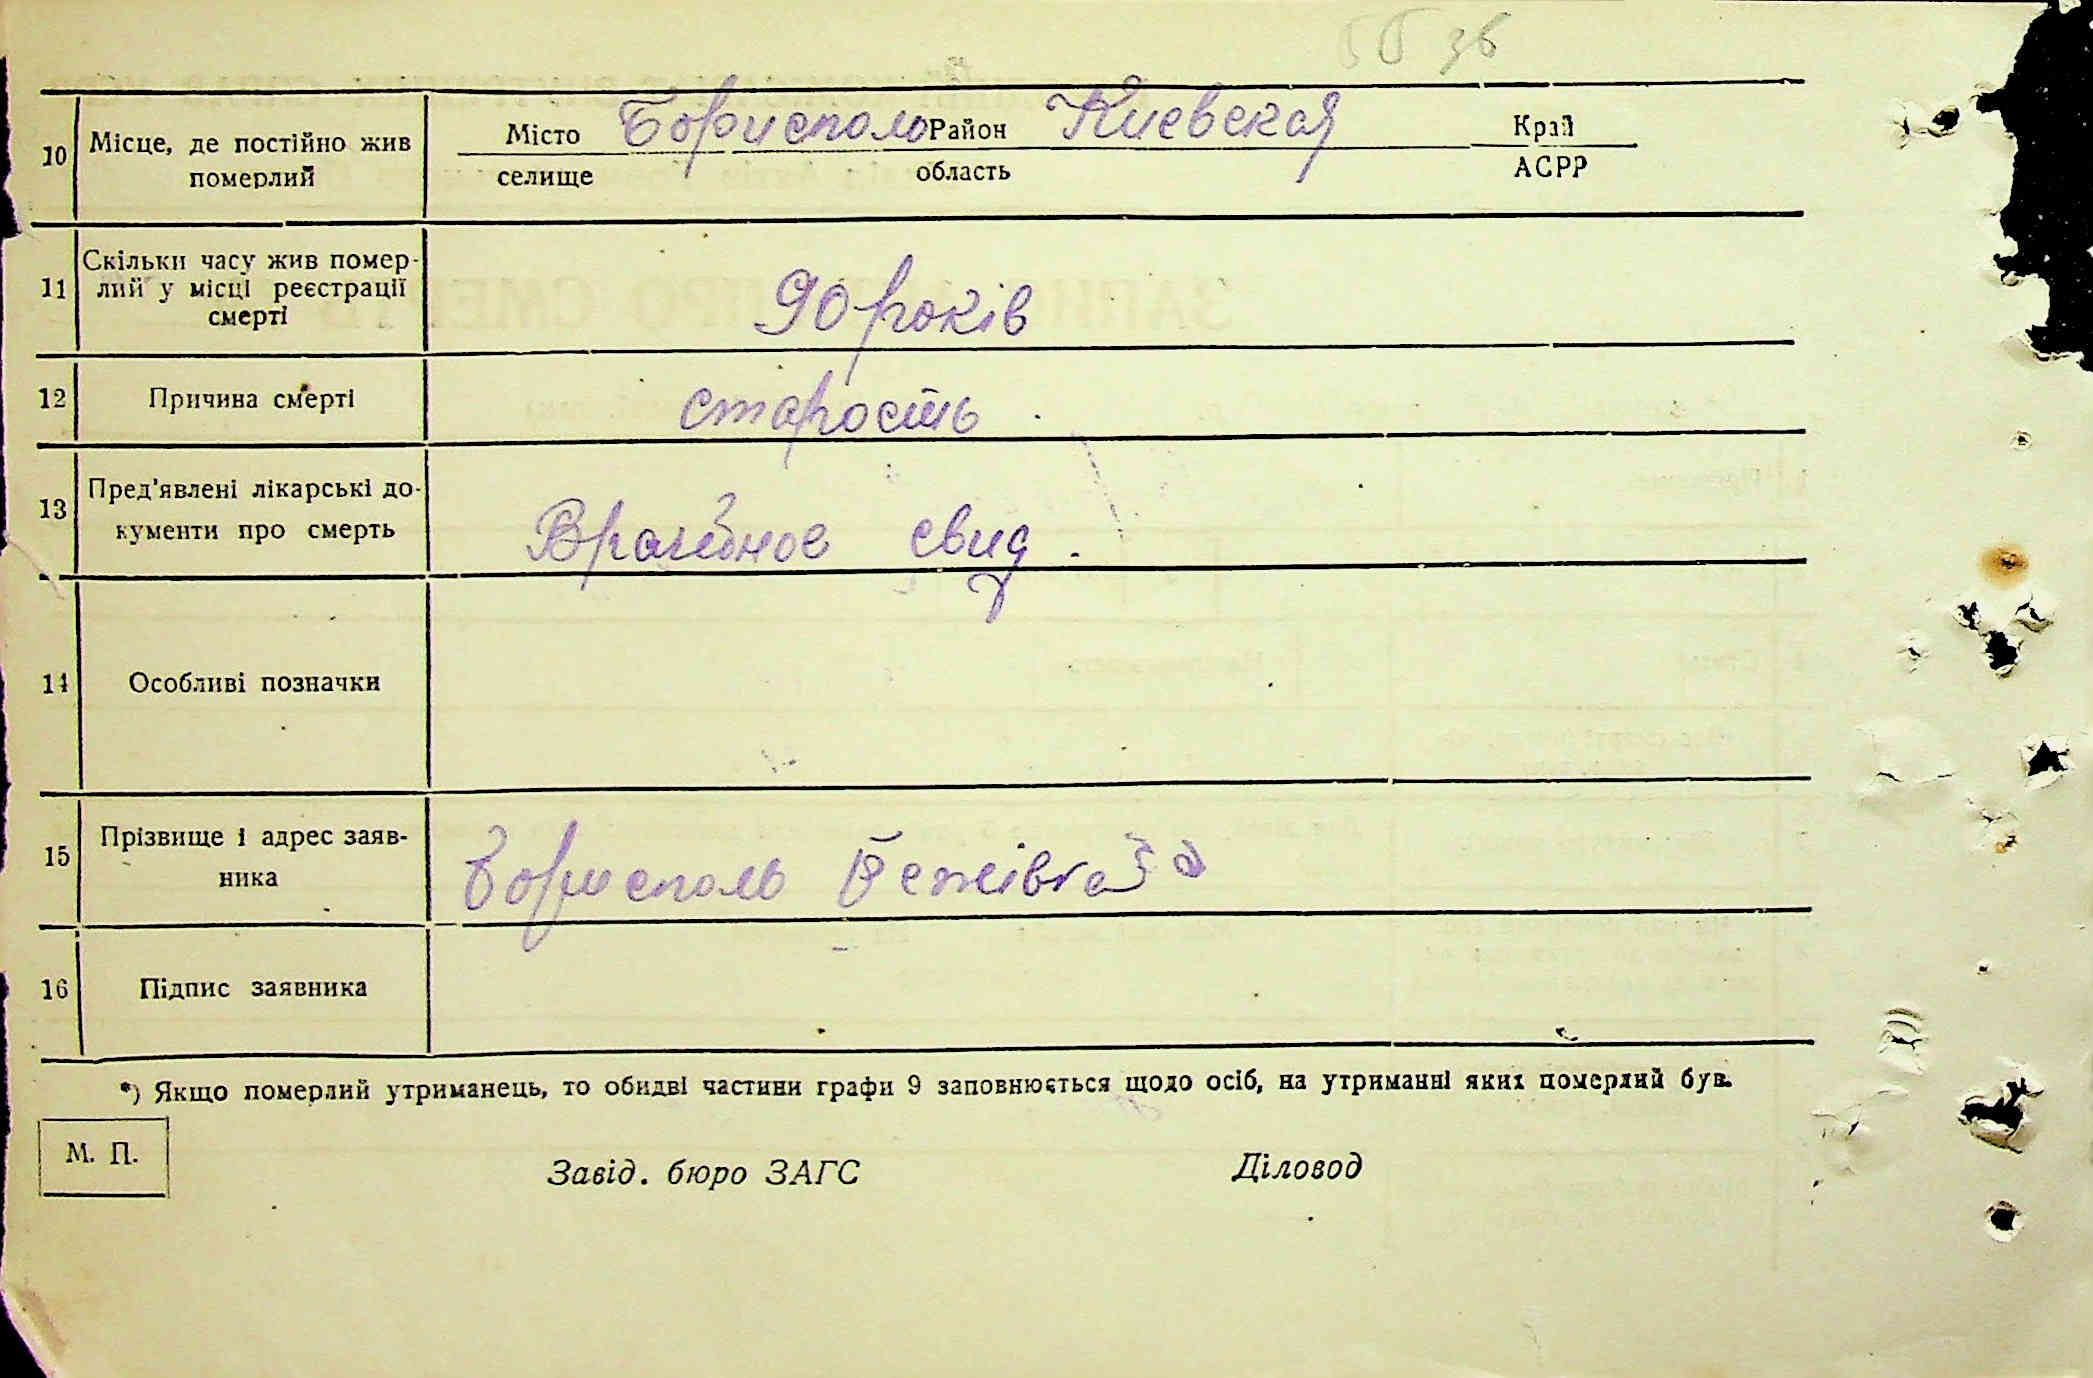 10 Місце, де постійно жив померлий
Місто селище Борисполо Район область Киевская Край АСРР
11 Скільки часу жив помер-
лий у місці реєстрації
смерті
90 років
12 Причина смерті старость
13 Пред'явлені лікарські до-
кументи про смерть
Врачебное свид.
14 Особливі позначки
15 Прізвище і адрес заяв-
ника
Борисполь
16 Підпис заявника
*) Якщо померлий утриманець, то обидві частини графи 9 заповнюється щодо осіб, на утриманні яких померлий був.
М. П.
Завід. бюро ЗАГС Діловод